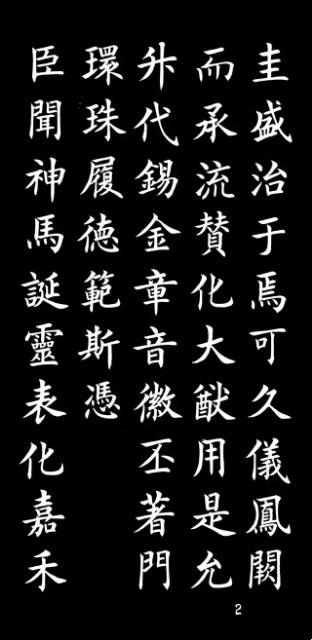 圭盛治于焉可久儀鳳闕
而承流賛化大猷用是允
升代錫金章音徽丕著門
環珠履徳範斯憑
臣聞神馬誕靈表化嘉禾
2